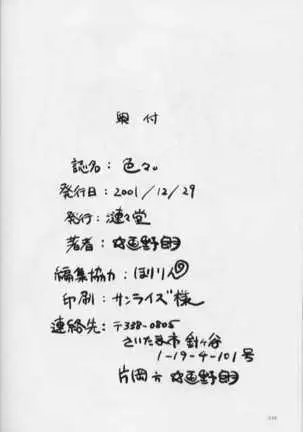 奥付
誌名:色々。
発行日:2001/12/29
発行:漣々堂
著者:
編集協力:ほりりん
印刷:サンライズ様
連絡先:〒338-0805
さいたま市 針ヶ谷
1-19-4-101号
片岡方